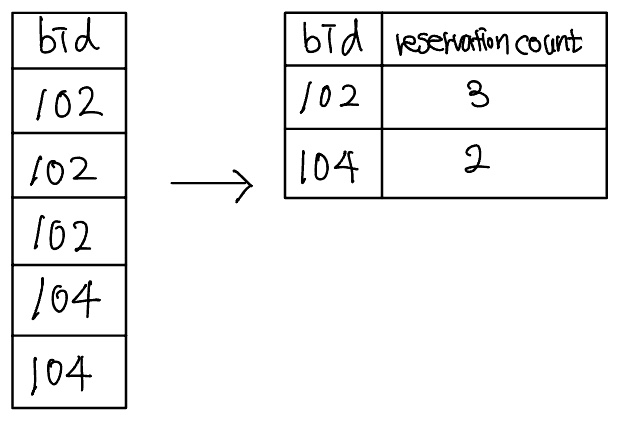 bId
102
102
102
104
104
bId reservation count
102 3
104 2